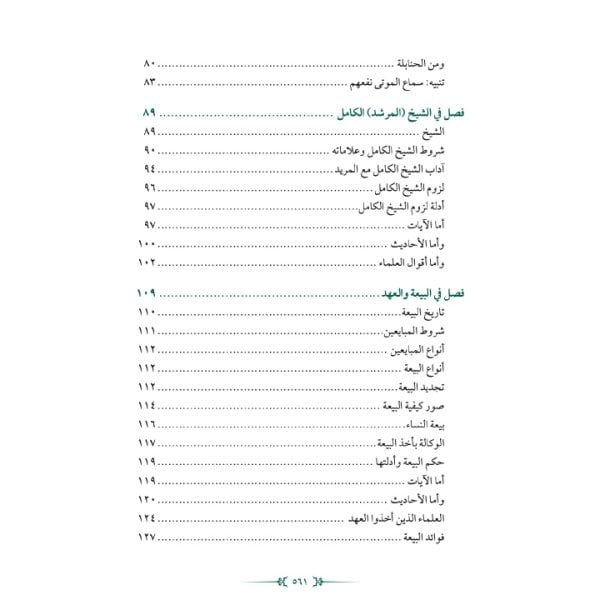 ومن الحنابلة ........ ٨٠
تنبيه: سماع الموتى نفعهم ........ ٨٣
فصل في الشيخ (المرشد) الكامل ........ ٨٩
الشيخ ........ ٨٩
شروط الشيخ الكامل وعلاماته ........ ٩٠
آداب الشيخ الكامل مع المريد ........ ٩٤
لزوم الشيخ الكامل ........ ٩٦
أدلة لزوم الشيخ الكامل ........ ٩٧
أما الآيات ........ ٩٧
وأما الأحاديث ........ ١٠٠
وأما أقوال العلماء ........ ١٠٢
فصل في البيعة والعهد ........ ١٠٩
تاريخ البيعة ........ ١١٠
شروط المبايعين ........ ١١١
أنواع المبايعين ........ ١١٢
أنواع البيعة ........ ١١٢
تجديد البيعة ........ ١١٢
صور كيفية البيعة ........ ١١٤
بيعة النساء ........ ١١٦
الوكالة بأخذ البيعة ........ ١١٧
حكم البيعة وأدلتها ........ ١١٩
أما الآيات ........ ١١٩
وأما الأحاديث ........ ١٢٠
العلماء الذين أخذوا العهد ........ ١٢٤
فوائد البيعة ........ ١٢٧
٥٦١